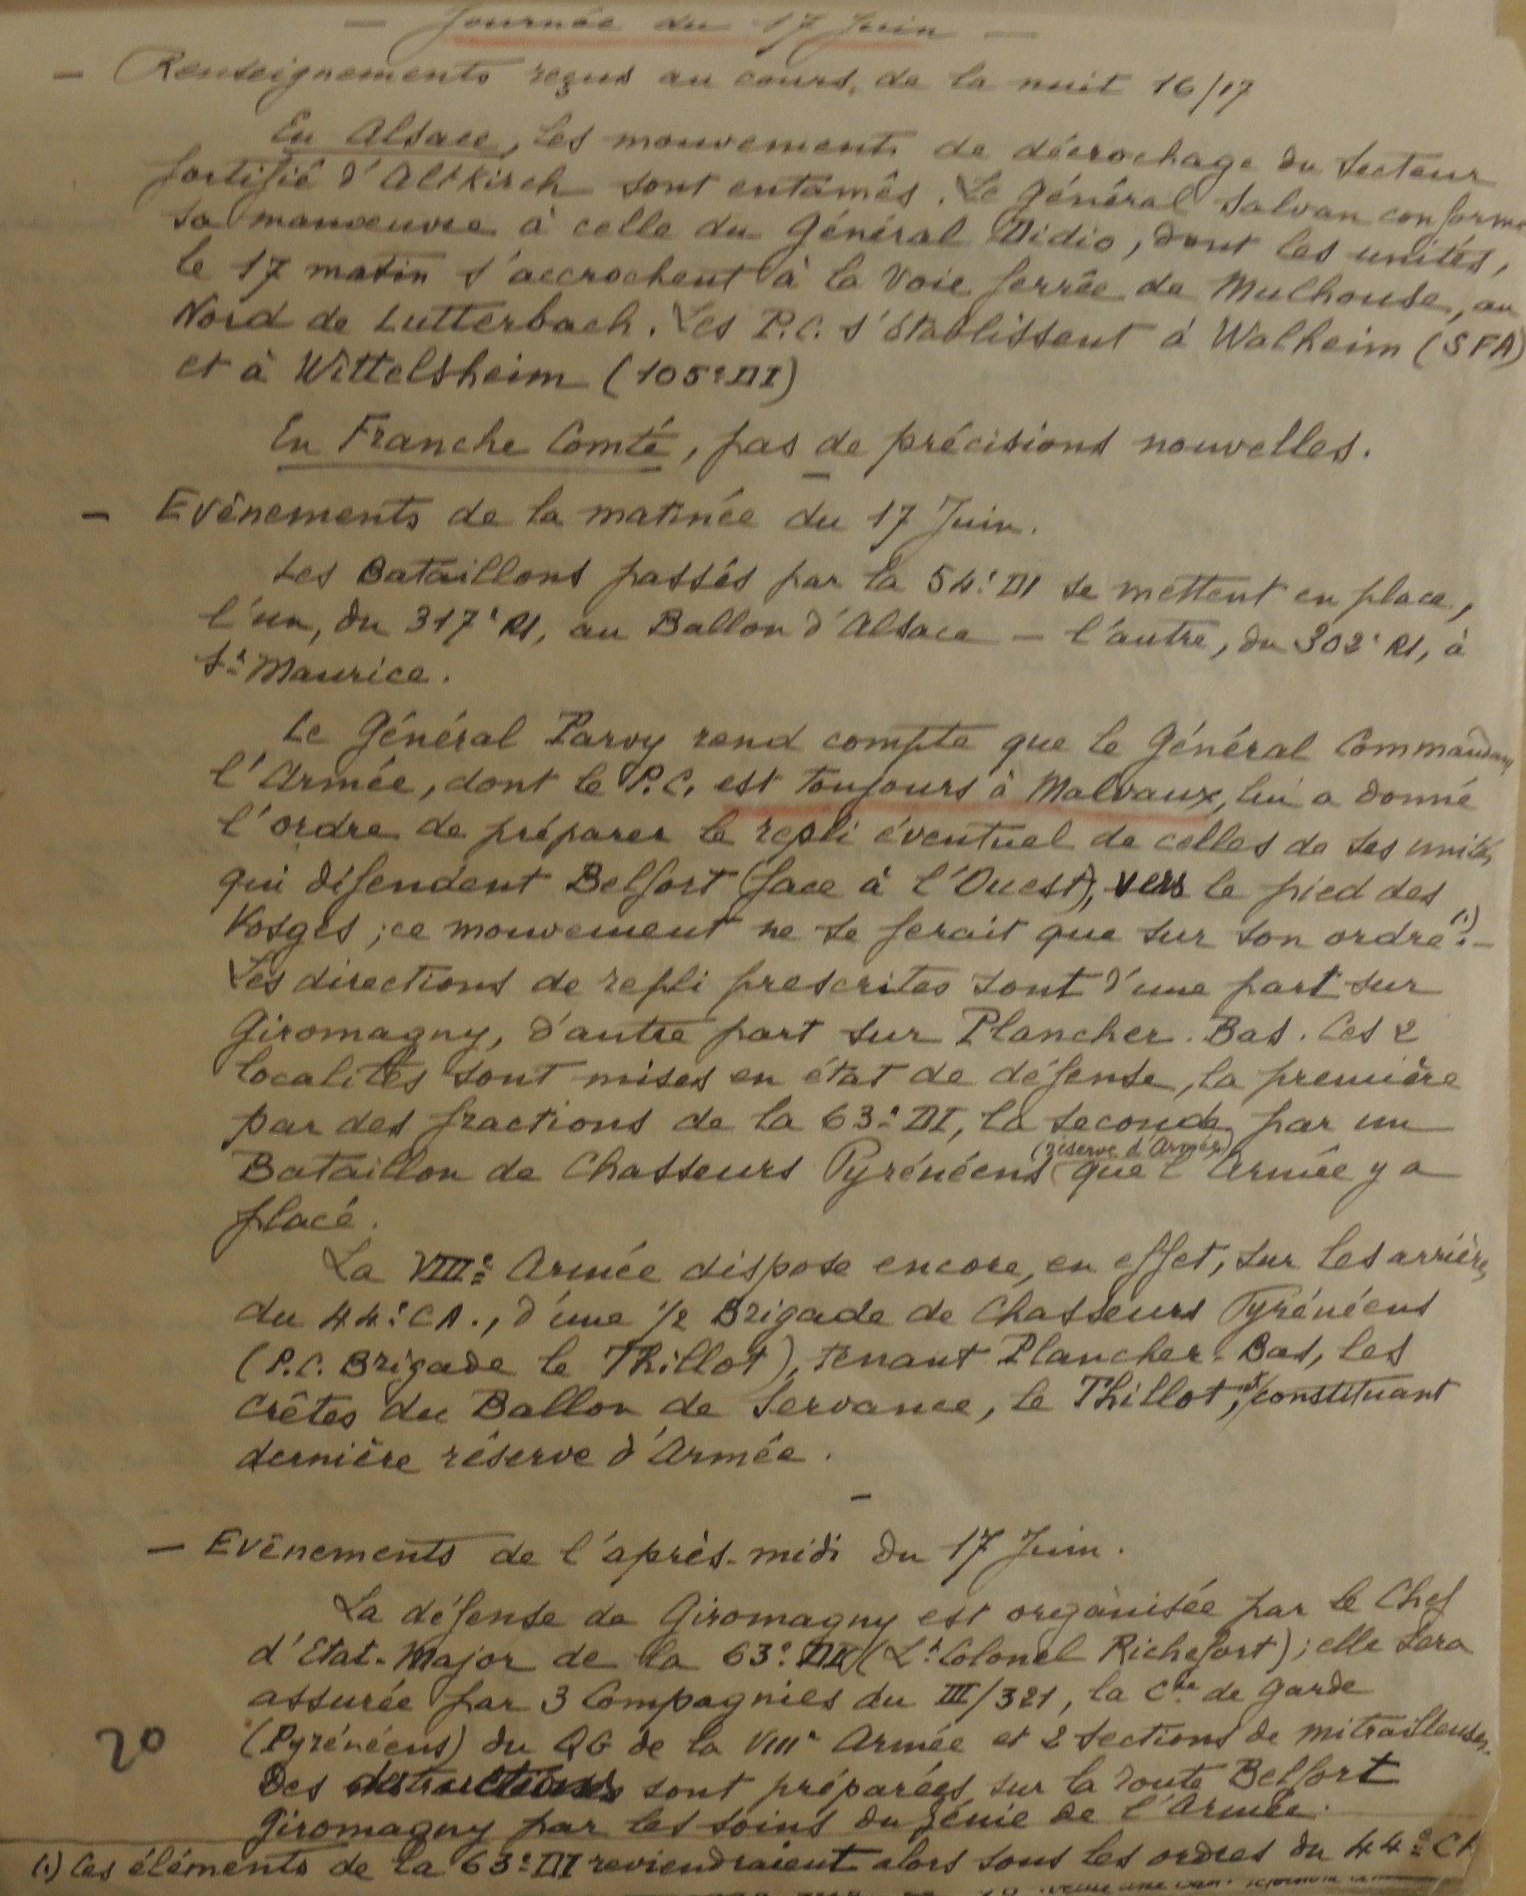 — Journée du 17 Juin —
— Renseignements reçus au cours de la nuit 16/17
En Alsace, les mouvements de décrochage du Secteur
fortifié d'Altkirch sont entamés. Le Général Salvan conforme
sa manœuvre à celle du Général Didio, dont les unités,
le 17 matin s'accrochent à la voie ferrée de Mulhouse, au
Nord de Lutterbach. Les P.C. s'établissent à Walheim (SFA)
et à Wittelsheim (105e DI)
En Franche Comté, pas de précisions nouvelles.
—
— Evênements de la matinée du 17 Juin.
Les Bataillons passés par la 54e DI se mettent en place,
l'un, du 317e RI, au Ballon d'Alsace — l'autre, du 302e RI, à
St Maurice.
Le Général Parvy rend compte que le Général Commandant
l'Armée, dont le P.C. est toujours à Malvaux, lui a donné
l'ordre de préparer le repli éventuel de celles de ses unités,
qui défendent Belfort (face à l'Ouest), vers le pied des
Vosges ; ce mouvement ne se ferait que sur son ordre (1). —
Les directions de repli prescrites sont d'une part sur
Giromagny, d'autre part sur Plancher-Bas. Ces 2
localités sont mises en état de défense, la première
par des fractions de la 63e DI, la seconde par un
Bataillon de Chasseurs Pyrénéens (réserve d'Armée) que l'Armée y a
placé.
La VIIIe Armée dispose encore, en effet, sur les arrières
du 44e CA., d'une 1/2 Brigade de Chasseurs Pyrénéens
(P.C. Brigade le Thillot), tenant Plancher-Bas, les
Crêtes du Ballon de Servance, le Thillot, et constituant
dernière réserve d'Armée.
—
— Evênements de l'après-midi du 17 Juin.
La défense de Giromagny est organisée par le Chef
d'Etat-Major de la 63e DI (Lt Colonel Richefort) ; elle sera
assurée par 3 Compagnies du III/321, la Cie de Garde
(Pyrénéens) du QG de la VIIIe Armée et 2 sections de mitrailleuses.
Des destructions sont préparées sur la route Belfort
Giromagny par les soins du Génie de l'Armée.
20
(1) Ces éléments de la 63e DI reviendraient alors sous les ordres du 44e CA